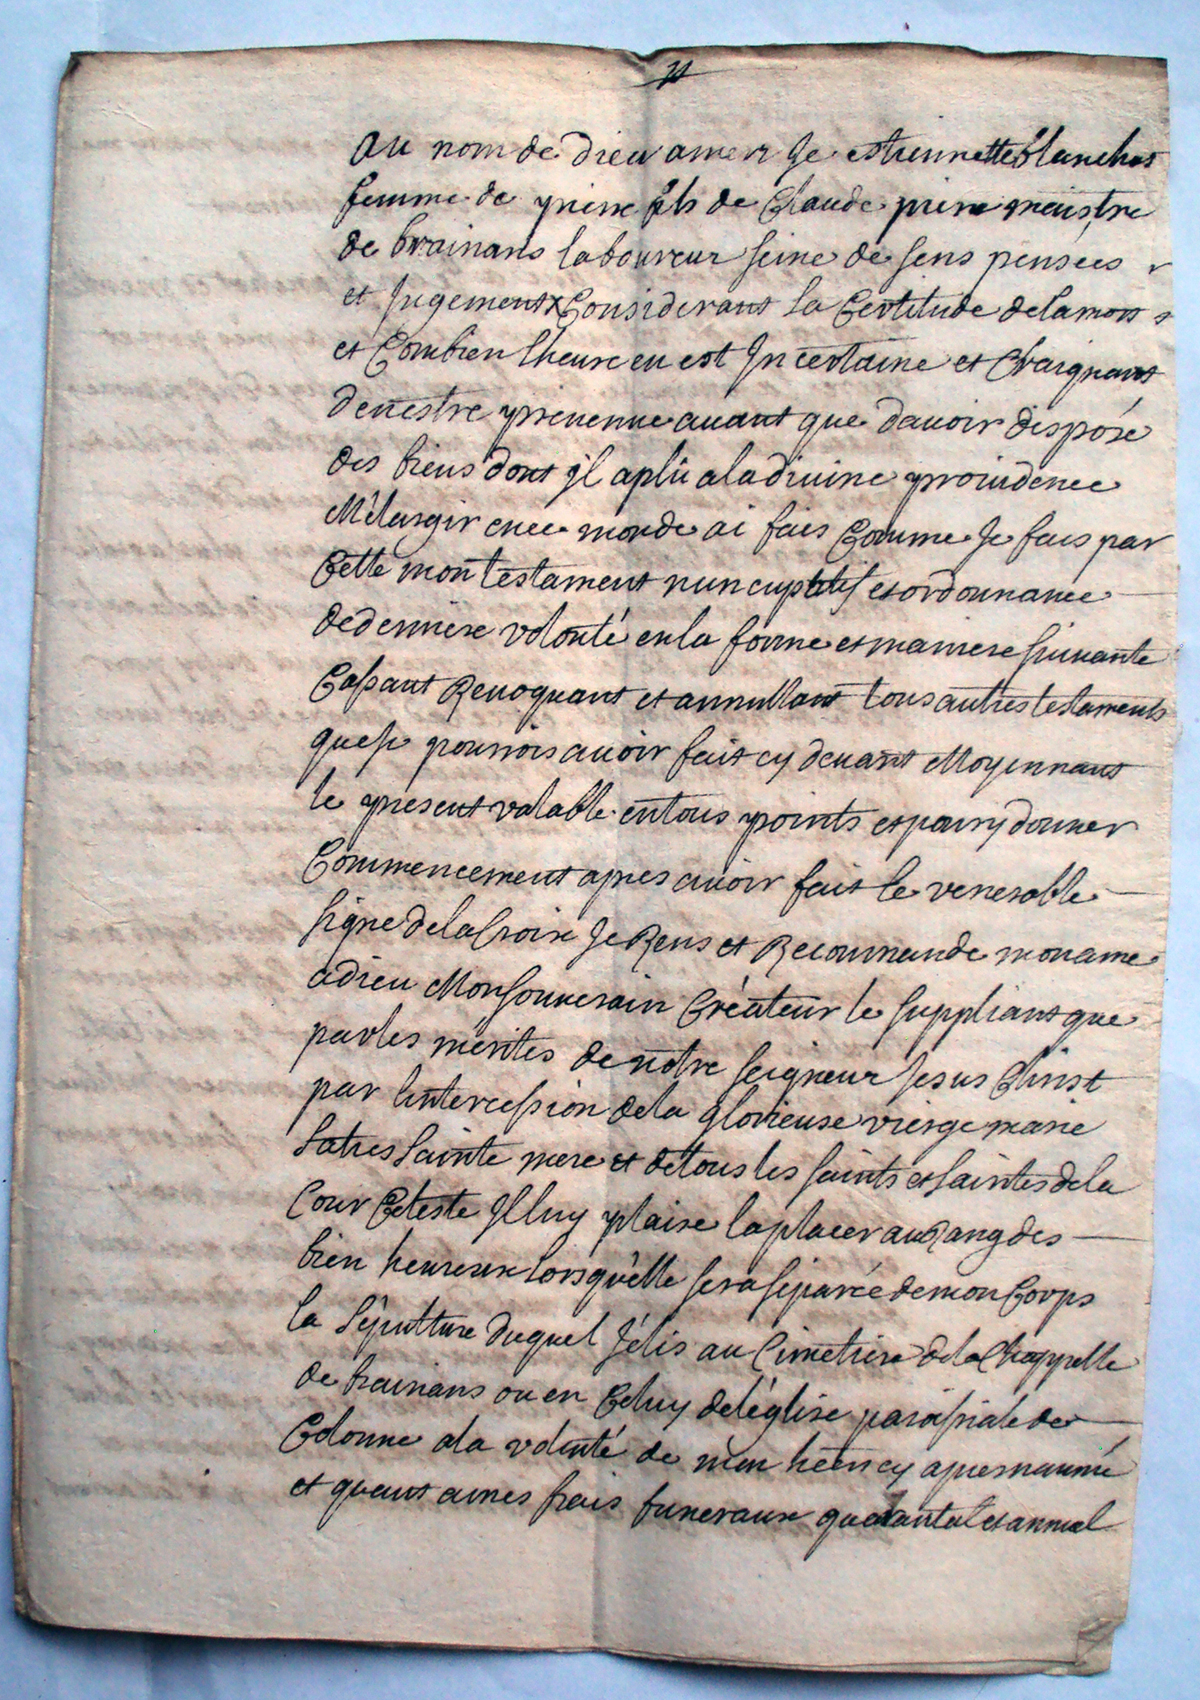 au nom de Dieu amen Je estiennette blanchot
femme de pierre fils de Claude pierre meistre
de brainans laboureur seine de sens pensees
et Jugement Considerant la Certitude delamort
et Combien lheure en est Incertaine et Craignant
denestre preuenue auant que dauoir disposé
des biens dont jl aplû aladiuine prouidence
M'élargir ence monde ai fais Comme Je fais par
Cette mon testament nuncupatif et ordonnance
dederniere volonté enla forme et maniere suiuante
Cassant Reuoquant et annullant tous autres testaments
queje pourrois auoir fait cy deuant Moyennant
le present valable entous points et pour y donner
Commencement apres auoir fait le venerable
signe delaCroix Je Rens et Recommande moname
adieu Monsouuerain Créateur le suppliant que
parles merites de notre seigneur Jesus Christ
par Lintercession dela glorieuse vierge marie
satressainte mere et detous les saints et saintes dela
Cour Celeste Jl luy plaise laplacer auRang des
bien heureux lorsqu'elle sera séparée demon Corps
la Sépulture duquel J'élis au Cimetiere dela Chappelle
de brainans ou en Celuy deléglise paroissiale de
Colonne ala volonté de mon heritier cy apresnommé
et quant ames frais funeraux quarantal et annuel